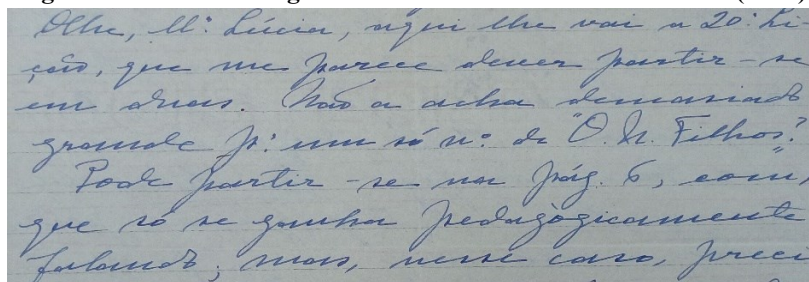 Olhe, M.ª Lúcia, aqui lhe vai a 20.ª Li-
ção, que me parece dever partir-se
em duas. Não a acha demasiado
grande p.ª um só n.º de "O. N. Filhos"?
Pode partir-se na pág. 6, com
que só se ganha pedagògicamente
falando; mas, nesse caso, preci